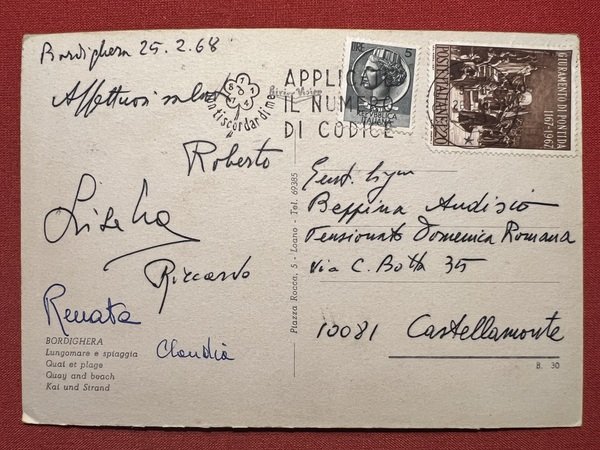 Bordighera 25.2.68
Affettuosi saluti
Roberto
Riccardo
Renata
Claudia
BORDIGHERA
Lungomare e spiaggia
Quai et plage
Quay and beach
Kai und Strand
Piazza Rocca, 5 - Loano - Tel. 69385
nontiscordardimè
APPLICATE
IL NUMERO
DI CODICE
LIRE 5
REPUBBLICA ITALIANA
GIURAMENTO DI PONTIDA
1167-1967
POSTE ITALIANE 20
Gent. Sig.na
Beppina Audisio
Pensionato Domenica Romana
Via C. Botta 35
10081 Castellamonte
B. 30